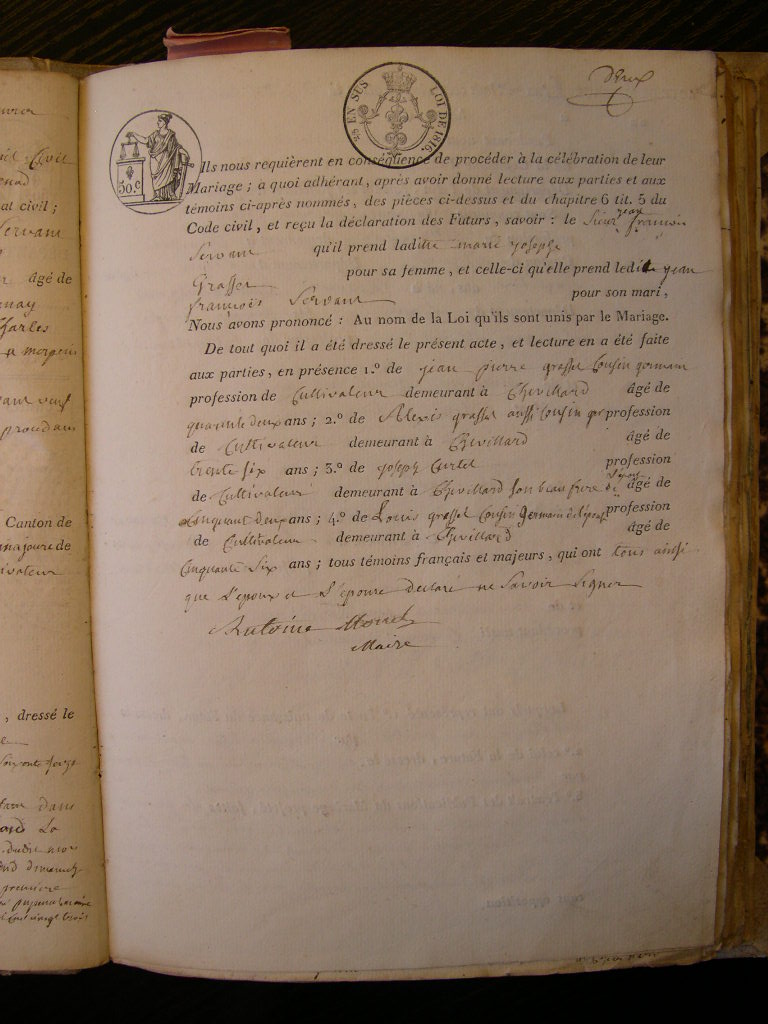 Deux
25 EN SUS LOI DE 1816.
30.c
Ils nous requièrent en conséquence de procéder à la célébration de leur
Mariage ; à quoi adhérant, après avoir donné lecture aux parties et aux
témoins ci-après nommés, des pièces ci-dessus et du chapitre 6 tit. 5 du
Code civil, et reçu la déclaration des Futurs, savoir : le Sieur jean françois
Servant qu'il prend ladite marie josephe
Grasset pour sa femme, et celle-ci qu'elle prend ledit jean
françois Servant pour son mari,
Nous avons prononcé : Au nom de la Loi qu'ils sont unis par le Mariage.
De tout quoi il a été dressé le présent acte, et lecture en a été faite
aux parties, en présence 1.º de jean pierre grasset Cousin germain
profession de Cultivateur demeurant à Chevillard âgé de
quarante deux ans ; 2.º de Alexis grasset aussi Cousin ger profession
de Cultivateur demeurant à Chevillard âgé de
trente six ans ; 3.º de joseph Curtet profession
de Cultivateur demeurant à Chevillard son beau frere âgé de
Cinquant deux ans ; 4.º de Louis grasset Cousin Germain de l'épouse profession
de Cultivateur demeurant à Chevillard âgé de
Cinquante Six ans ; tous témoins français et majeurs, qui ont tous ainsi
que L'époux et L'épouse declaré ne Savoir Signer
Antoine
Maire
Civil
nat civil ;
Servant
âgé de
Charles
Canton de
majeure de
, dressé le
dans
premiere